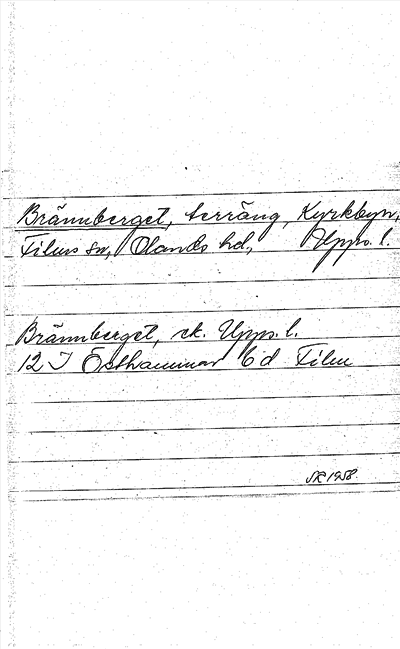 Brännberget, terräng, Kyrkbyn,
Films sn, Olands hd, Upps. l.
Brännberget, sk. Upps. l.
12 I Östhammar 6d Film
1958.